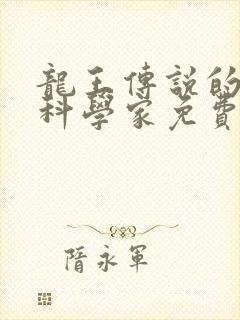 龍王傳說的
科學家免費
隋永軍